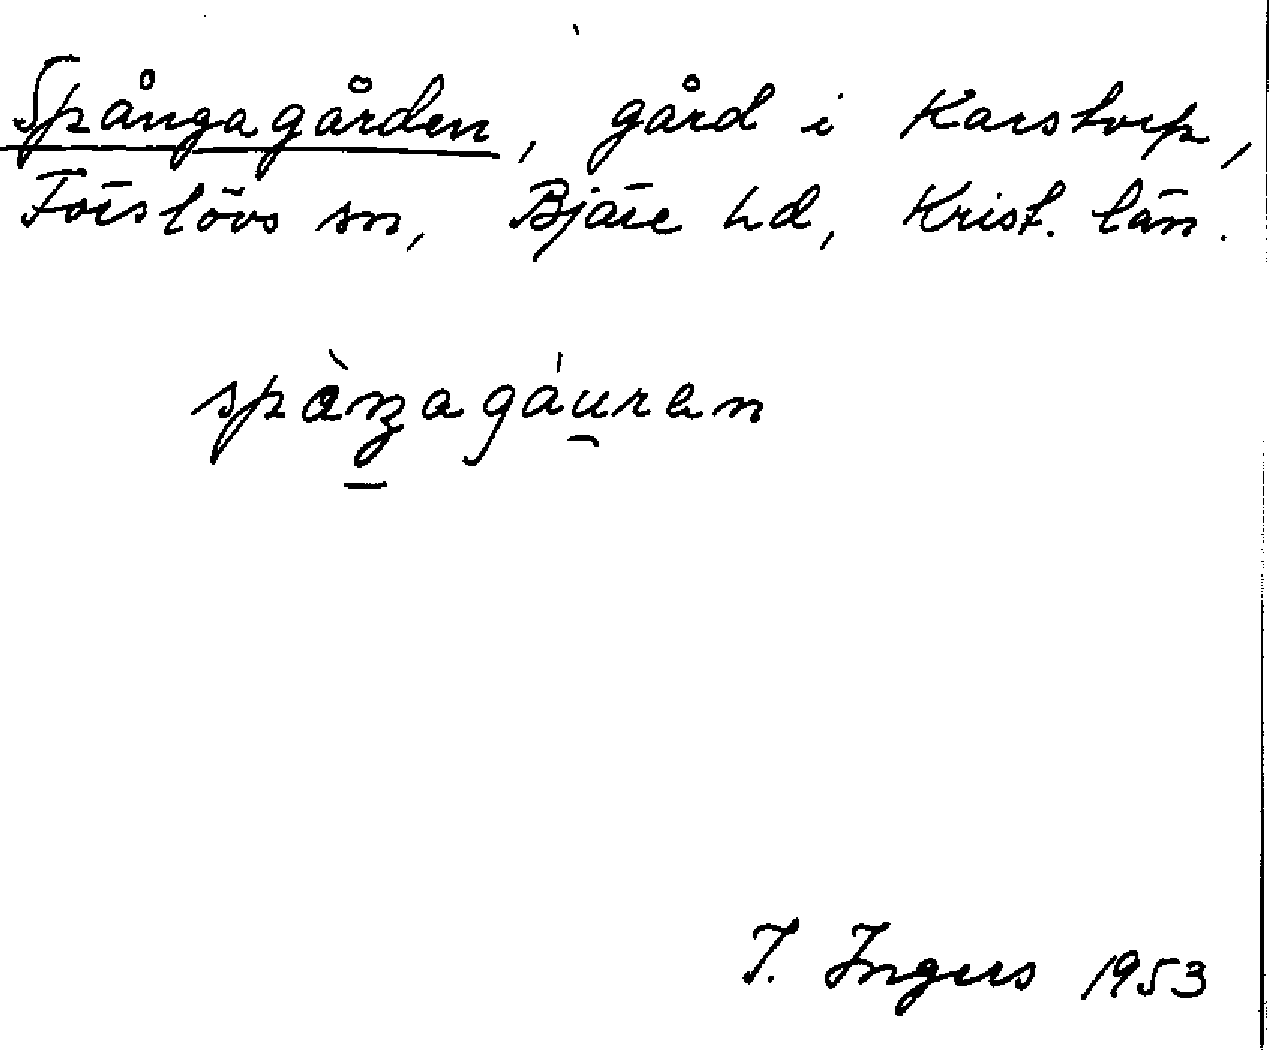 Spångagården, gård i Karstorp,
Förslövs sn, Bjäre hd, Krist. län.
spàŋagáu̯ran
I. Ingers 1953